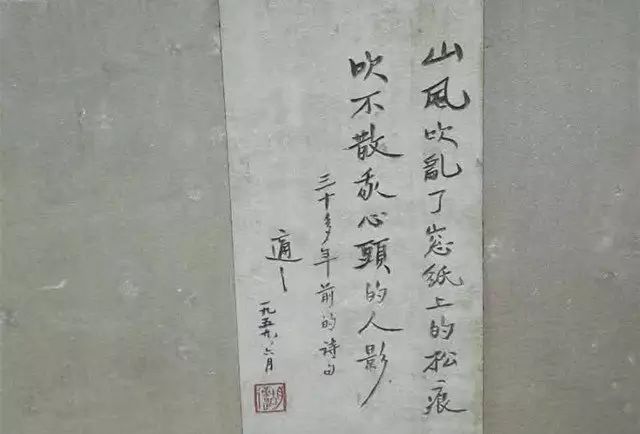 山風吹亂了窓紙上的松痕
吹不散我心頭的人影
三十多年前的诗句
適之
一九五九、六月